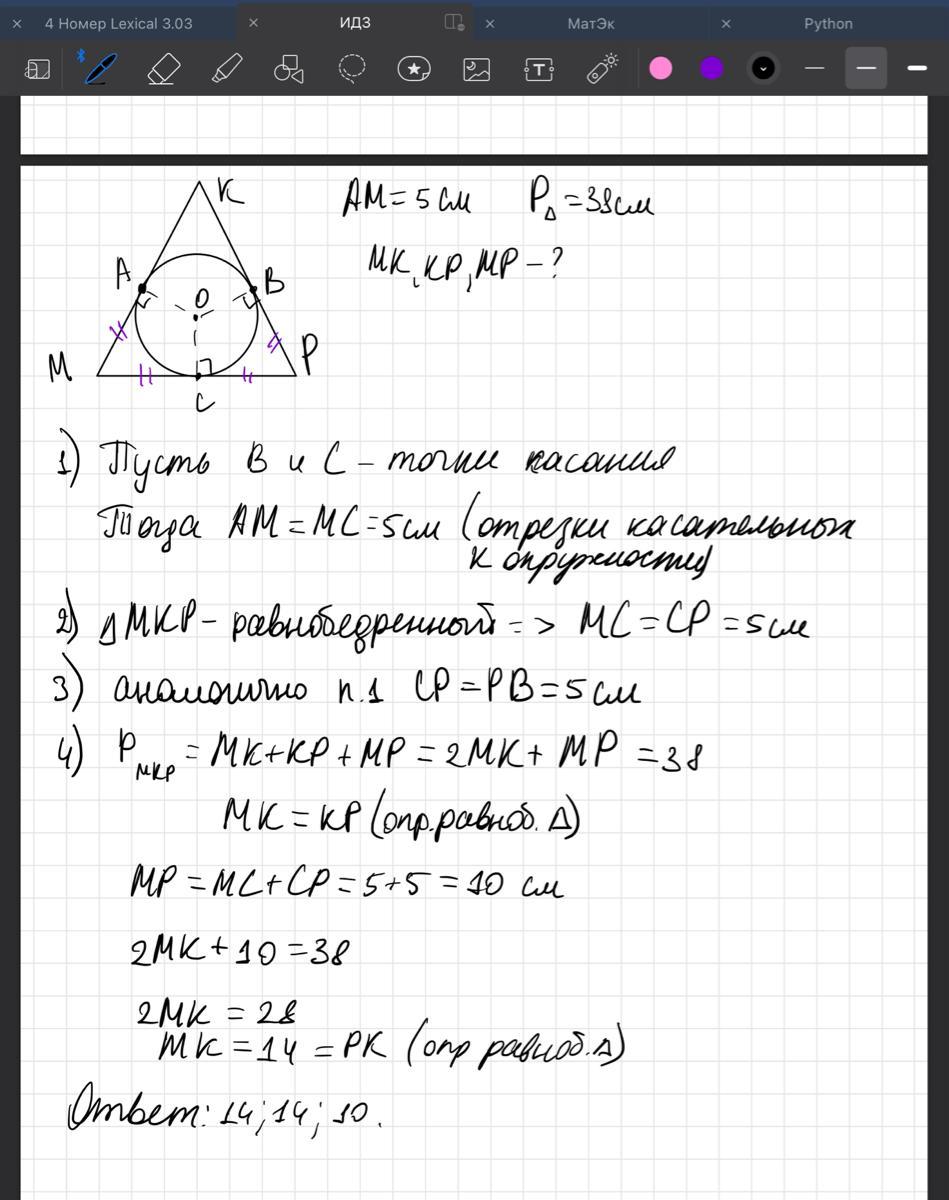 4 Номер Lexical 3.03
ИДЗ
МатЭк
Python
K
A
B
O
M
P
C
AM = 5 см P△ = 38 см
MK, KP, MP – ?
1) Пусть B и C – точки касания
Тогда AM = MC = 5 см (отрезки касательных
к окружности)
2) △MKP – равнобедренный => MC = CP = 5 см
3) аналогично п.1 CP = PB = 5 см
4) P MKP = MK + KP + MP = 2MK + MP = 38
MK = KP (опр. равноб. △)
MP = MC + CP = 5 + 5 = 10 см
2MK + 10 = 38
2MK = 28
MK = 14 = PK (опр равноб. △)
Ответ: 14; 14; 10.